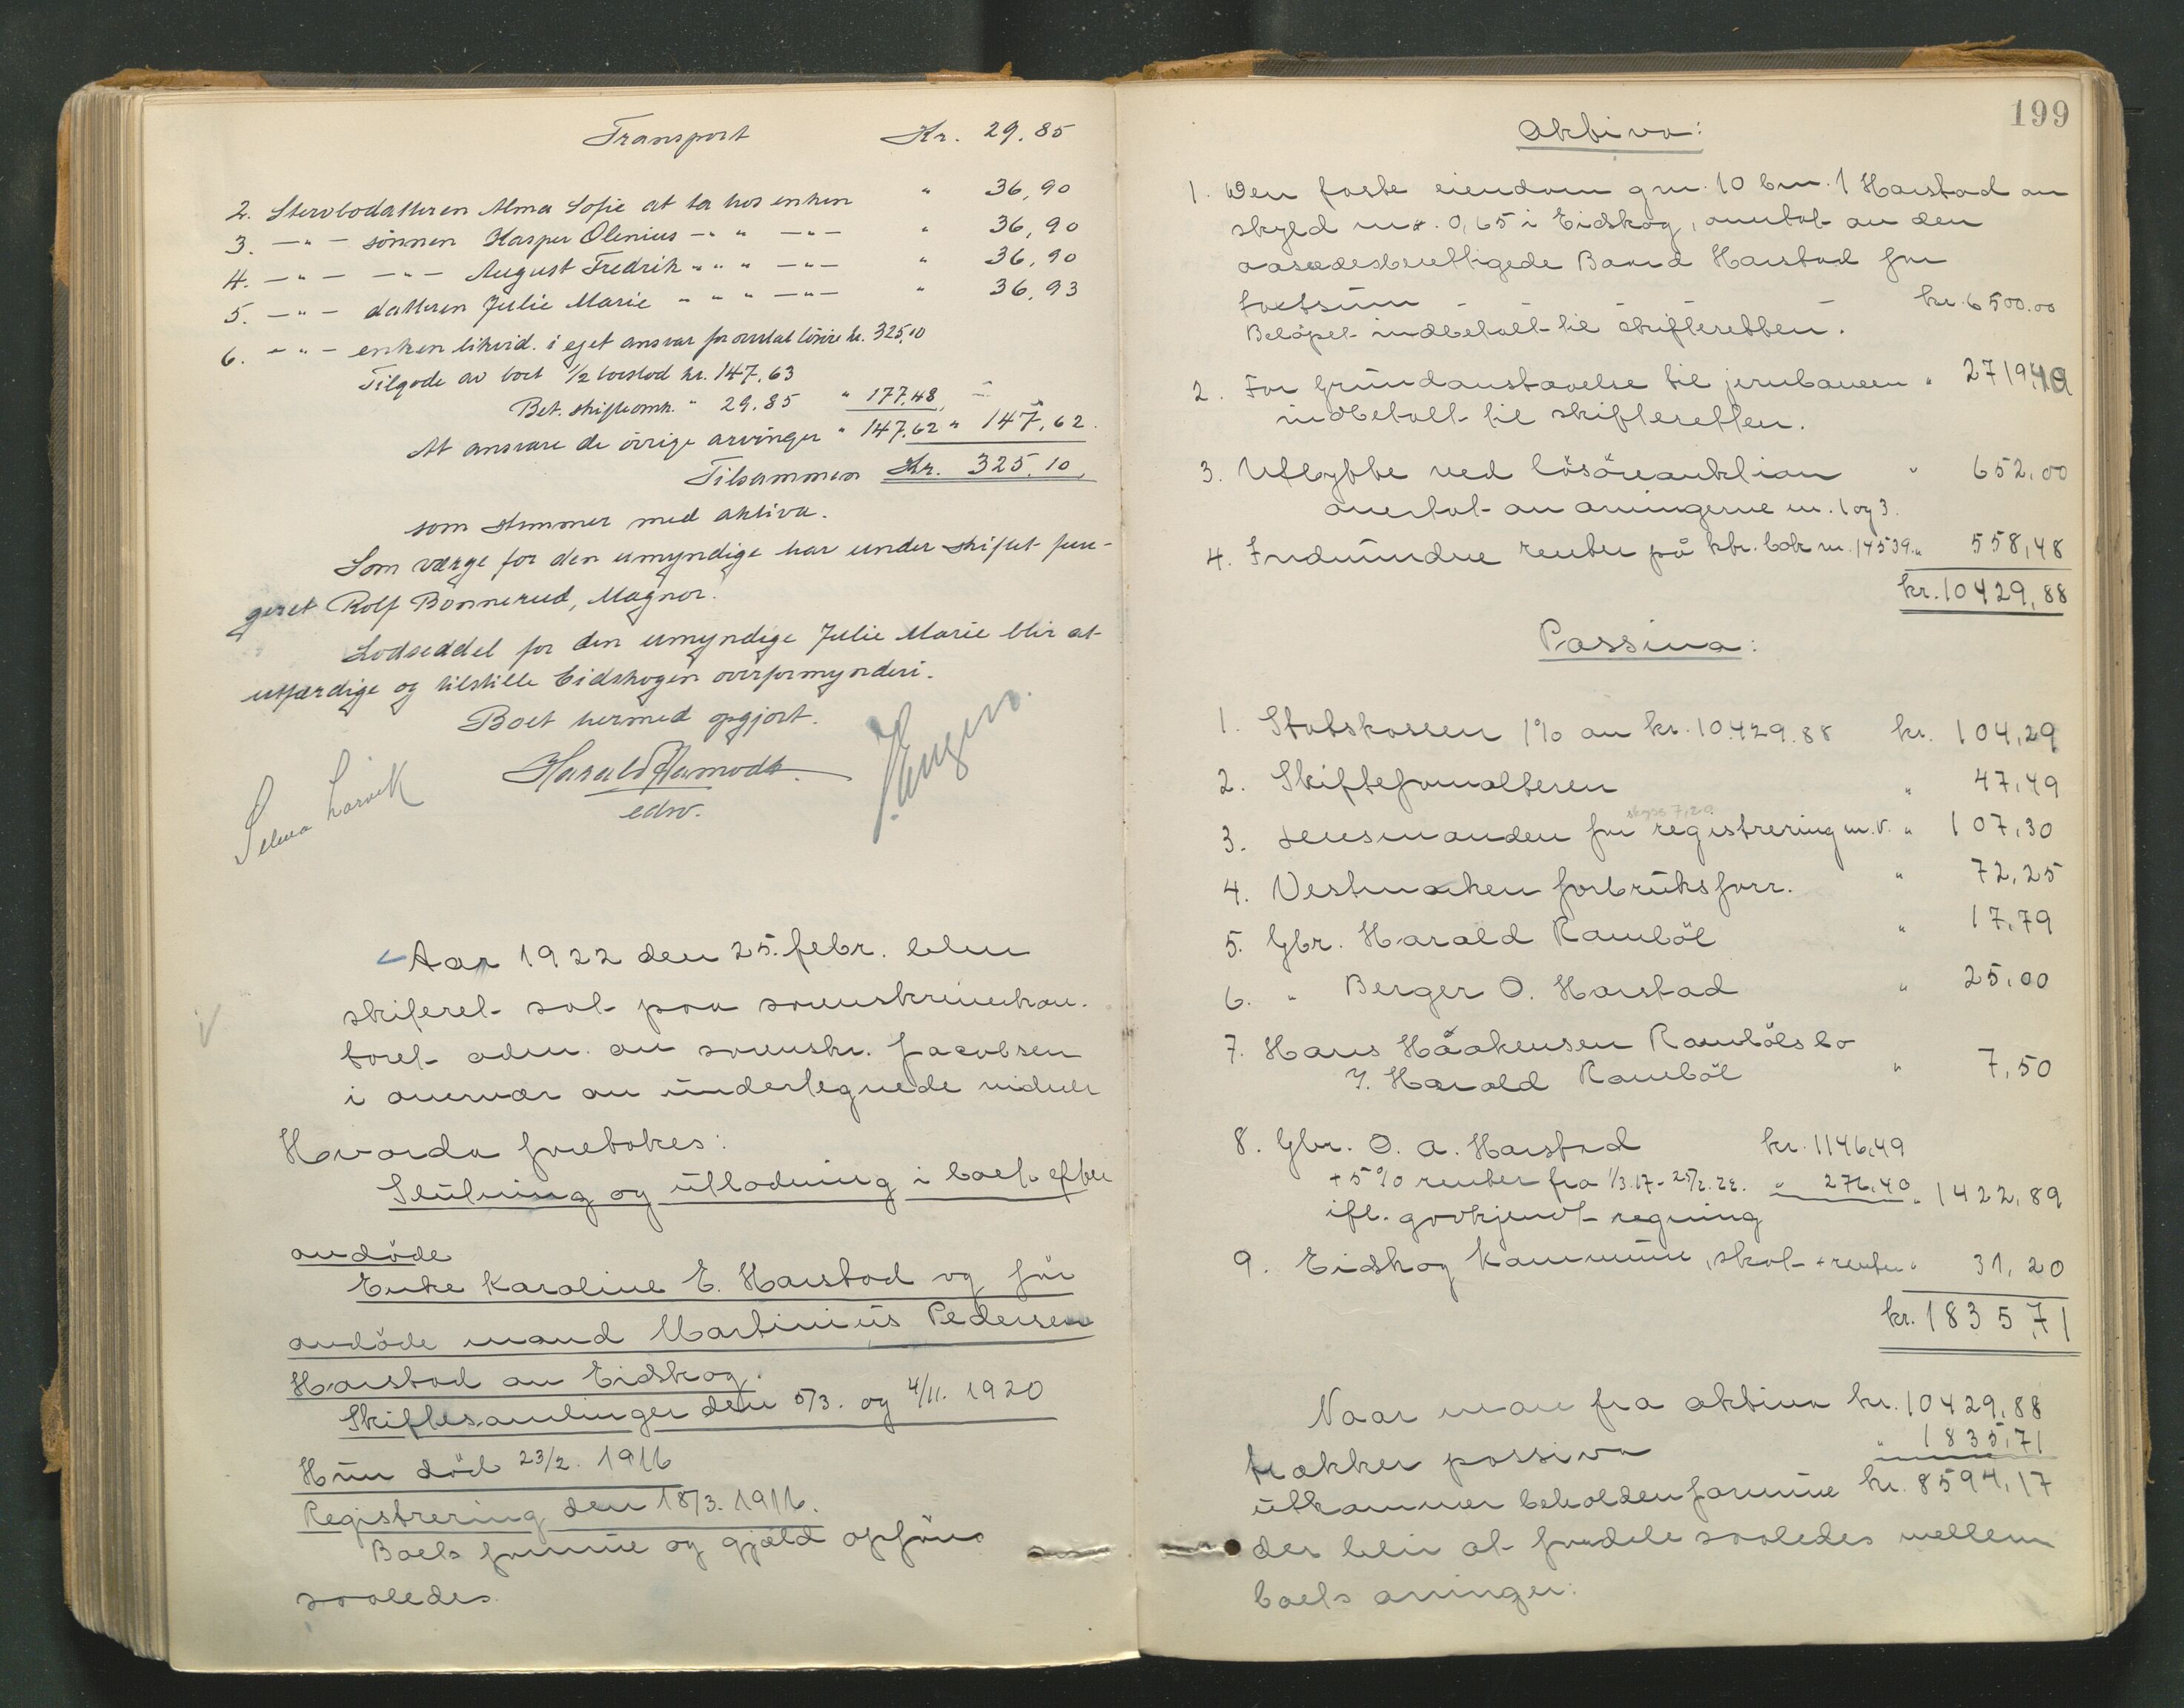 Transport Kr. 29.85
2. Stervbodatteren Alma Sofie at ta hos enken " 36,90
3. —"— sönnen Kasper Olenius —"— " —"— " 36,90
4. —"— —"— August Fredrik " " " —"— " 36,90
5. —"— datteren Julie Marie " " " —"— " 36,93
6. —"— enken likvid. i eget ansvar for overtat lösöre kr. 325,10
Tilgode av boet 1/2 boeslod kr. 147,63
Bet. skifteomk. " 29.85 " 177.48
At ansvare de övrige arvinger " 147,62 " 147,62.
Tilsammen Kr. 325,10
som stemmer med aktiva.
Som værge for den umyndige har under skiftet fun-
geret Rolf Bonnerud, Magnor.
Lodseddel for den umyndige Julie Marie blir at
utfærdige og tilstille Eidskogen overformynderi.
Boet hermed opgjort.
Harald Aamodt.
edsv.
Selma Larvik
Aar 1922 den 25. febr. blev
skifteret sat paa sorenskriverkon-
toret adm. av sorenskr. Jacobsen
i overvær av undertegnede vidner
Hvorda foretokes:
Slutning og utlodning i boet efter
avdöde
Enke Karoline E. Harstad og før
avdöde mand Martinius Pedersen
Harstad av Eidskog.
Skiftesamlinger den 5/3. og 4/11. 1920
Hun död 23/2. 1916
Registrering den 18/3. 1916.
Boets formue og gjæld opföres
saaledes
199
Aktiva:
1. Den faste eiendom gnr. 10 bnr. 1 Harstad av
skyld mrk. 0,65 i Eidskog, overtat av den
aasædesberettigede Harstad for
taxtsum - - - - - kr. 6500.00
Belöpet indbetalt til skifteretten.
2. For Grundavstaaelse til jernbanen " 2719,40
indbetalt til skifteretten.
3. Utbytte ved lösöreauktion " 652,00
overtat av arvingerne nr. 1 og 3.
4. Indvundne renter på kbr. bok nr. 14539. " 558,48
kr. 10429,88
Passiva:
1. Statskassen 1% av kr. 10.429.88 kr. 104,29
2. Skifteforvalteren " 47,49
skyss 7,20
3. Lensmanden for registrering m.v. " 107,30
4. Vestmarken forbruksforr. " 72,25
5. Gbr. Harald Ramböl " 17,79
6. " Berger O. Harstad " 25,00
7. Hans Håakensen Rambölsbo
v. Harald Ramböl " 7,50
8. Gbr. O. A. Harstad kr. 1146,49
+ 5% renter fra 1/3.17 - 25/2.22. " 276,40 " 1422,89
ifl. godkjendt regning
9. Eidskog kommune, skat + renter " 31,20
kr. 1835,71
Naar man fra aktiva kr. 10429,88
trækker passiva " 1835,71
utkommer beholden formue kr. 8594,17
der blir at fordele saaledes mellem
boets arvinger: